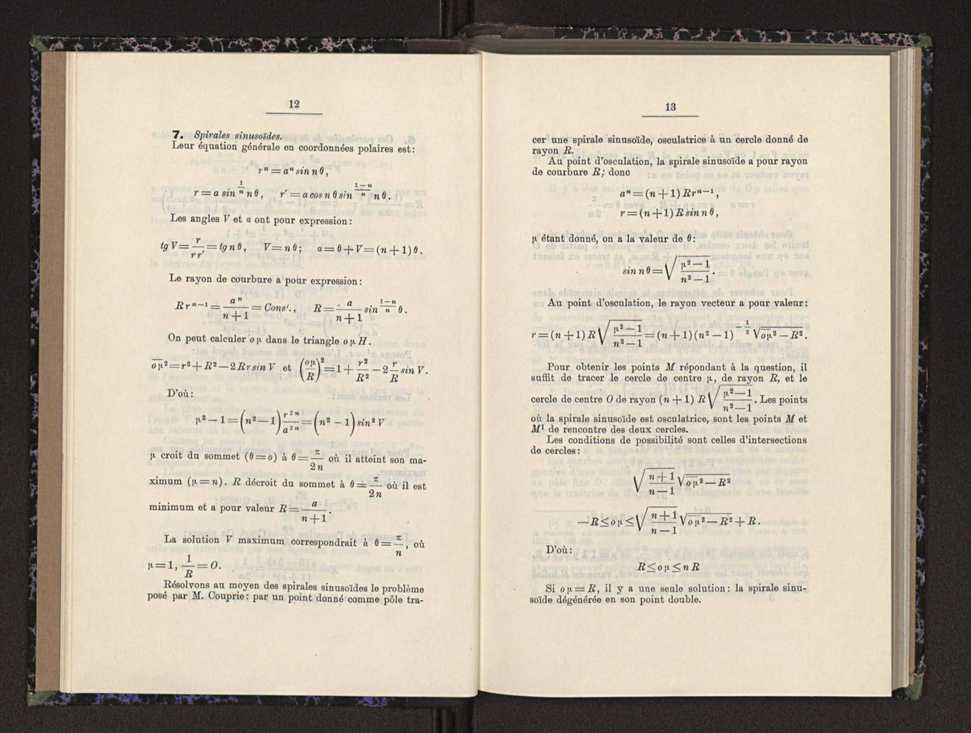 12
7. Spirales sinusoïdes.
Leur équation générale en coordonnées polaires est:
rⁿ = aⁿ sin n θ,
r = a sin^(1/n) n θ,   r' = a cos n θ sin^((1−n)/n) n θ.
Les angles V et α ont pour expression:
tg V = r/rr' = tg n θ,   V = n θ;   α = θ + V = (n + 1) θ.
Le rayon de courbure a pour expression:
R rⁿ⁻¹ = aⁿ/(n + 1) = Consᵗ.,   R = a/(n + 1) sin^((1−n)/n) θ.
On peut calculer oμ dans le triangle o μ H.
oμ² = r² + R² − 2 R r sin V et (oμ/R)² = 1 + r²/R² − 2 r/R sin V.
D'où:
μ² − 1 = (n² − 1) r²ⁿ/a²ⁿ = (n² − 1) sin² V
μ croit du sommet (θ = o) à θ = π/2n où il atteint son ma-
ximum (μ = n). R décroit du sommet à θ = π/2n où il est
minimum et a pour valeur R = a/(n + 1).
La solution V maximum correspondrait à θ = π/n, où
μ = 1, 1/R = O.
Résolvons au moyen des spirales sinusoïdes le problème
posé par M. Couprie: par un point donné comme pôle tra-
13
cer une spirale sinusoïde, osculatrice à un cercle donné de
rayon R.
Au point d'osculation, la spirale sinusoïde a pour rayon
de courbure R; donc
aⁿ = (n + 1) R rⁿ⁻¹,
r = (n + 1) R sin n θ,
μ étant donné, on a la valeur de θ:
sin n θ = √((μ² − 1)/(n² − 1)).
Au point d'osculation, le rayon vecteur a pour valeur:
r = (n + 1) R √((μ² − 1)/(n² − 1)) = (n + 1) (n² − 1)^(−1/2) √(oμ² − R²).
Pour obtenir les points M répondant à la question, il
suffit de tracer le cercle de centre μ, de rayon R, et le
cercle de centre O de rayon (n + 1) R √((μ² − 1)/(n² − 1)). Les points
où la spirale sinusoïde est osculatrice, sont les points M et
M¹ de rencontre des deux cercles.
Les conditions de possibilité sont celles d'intersections
de cercles:
√((n + 1)/(n − 1)) √(oμ² − R²)
— R ≤ o μ ≤ √((n + 1)/(n − 1)) √(oμ² − R²) + R.
D'où:
R ≤ o μ ≤ n R
Si o μ = R, il y a une seule solution: la spirale sinu-
soïde dégénérée en son point double.